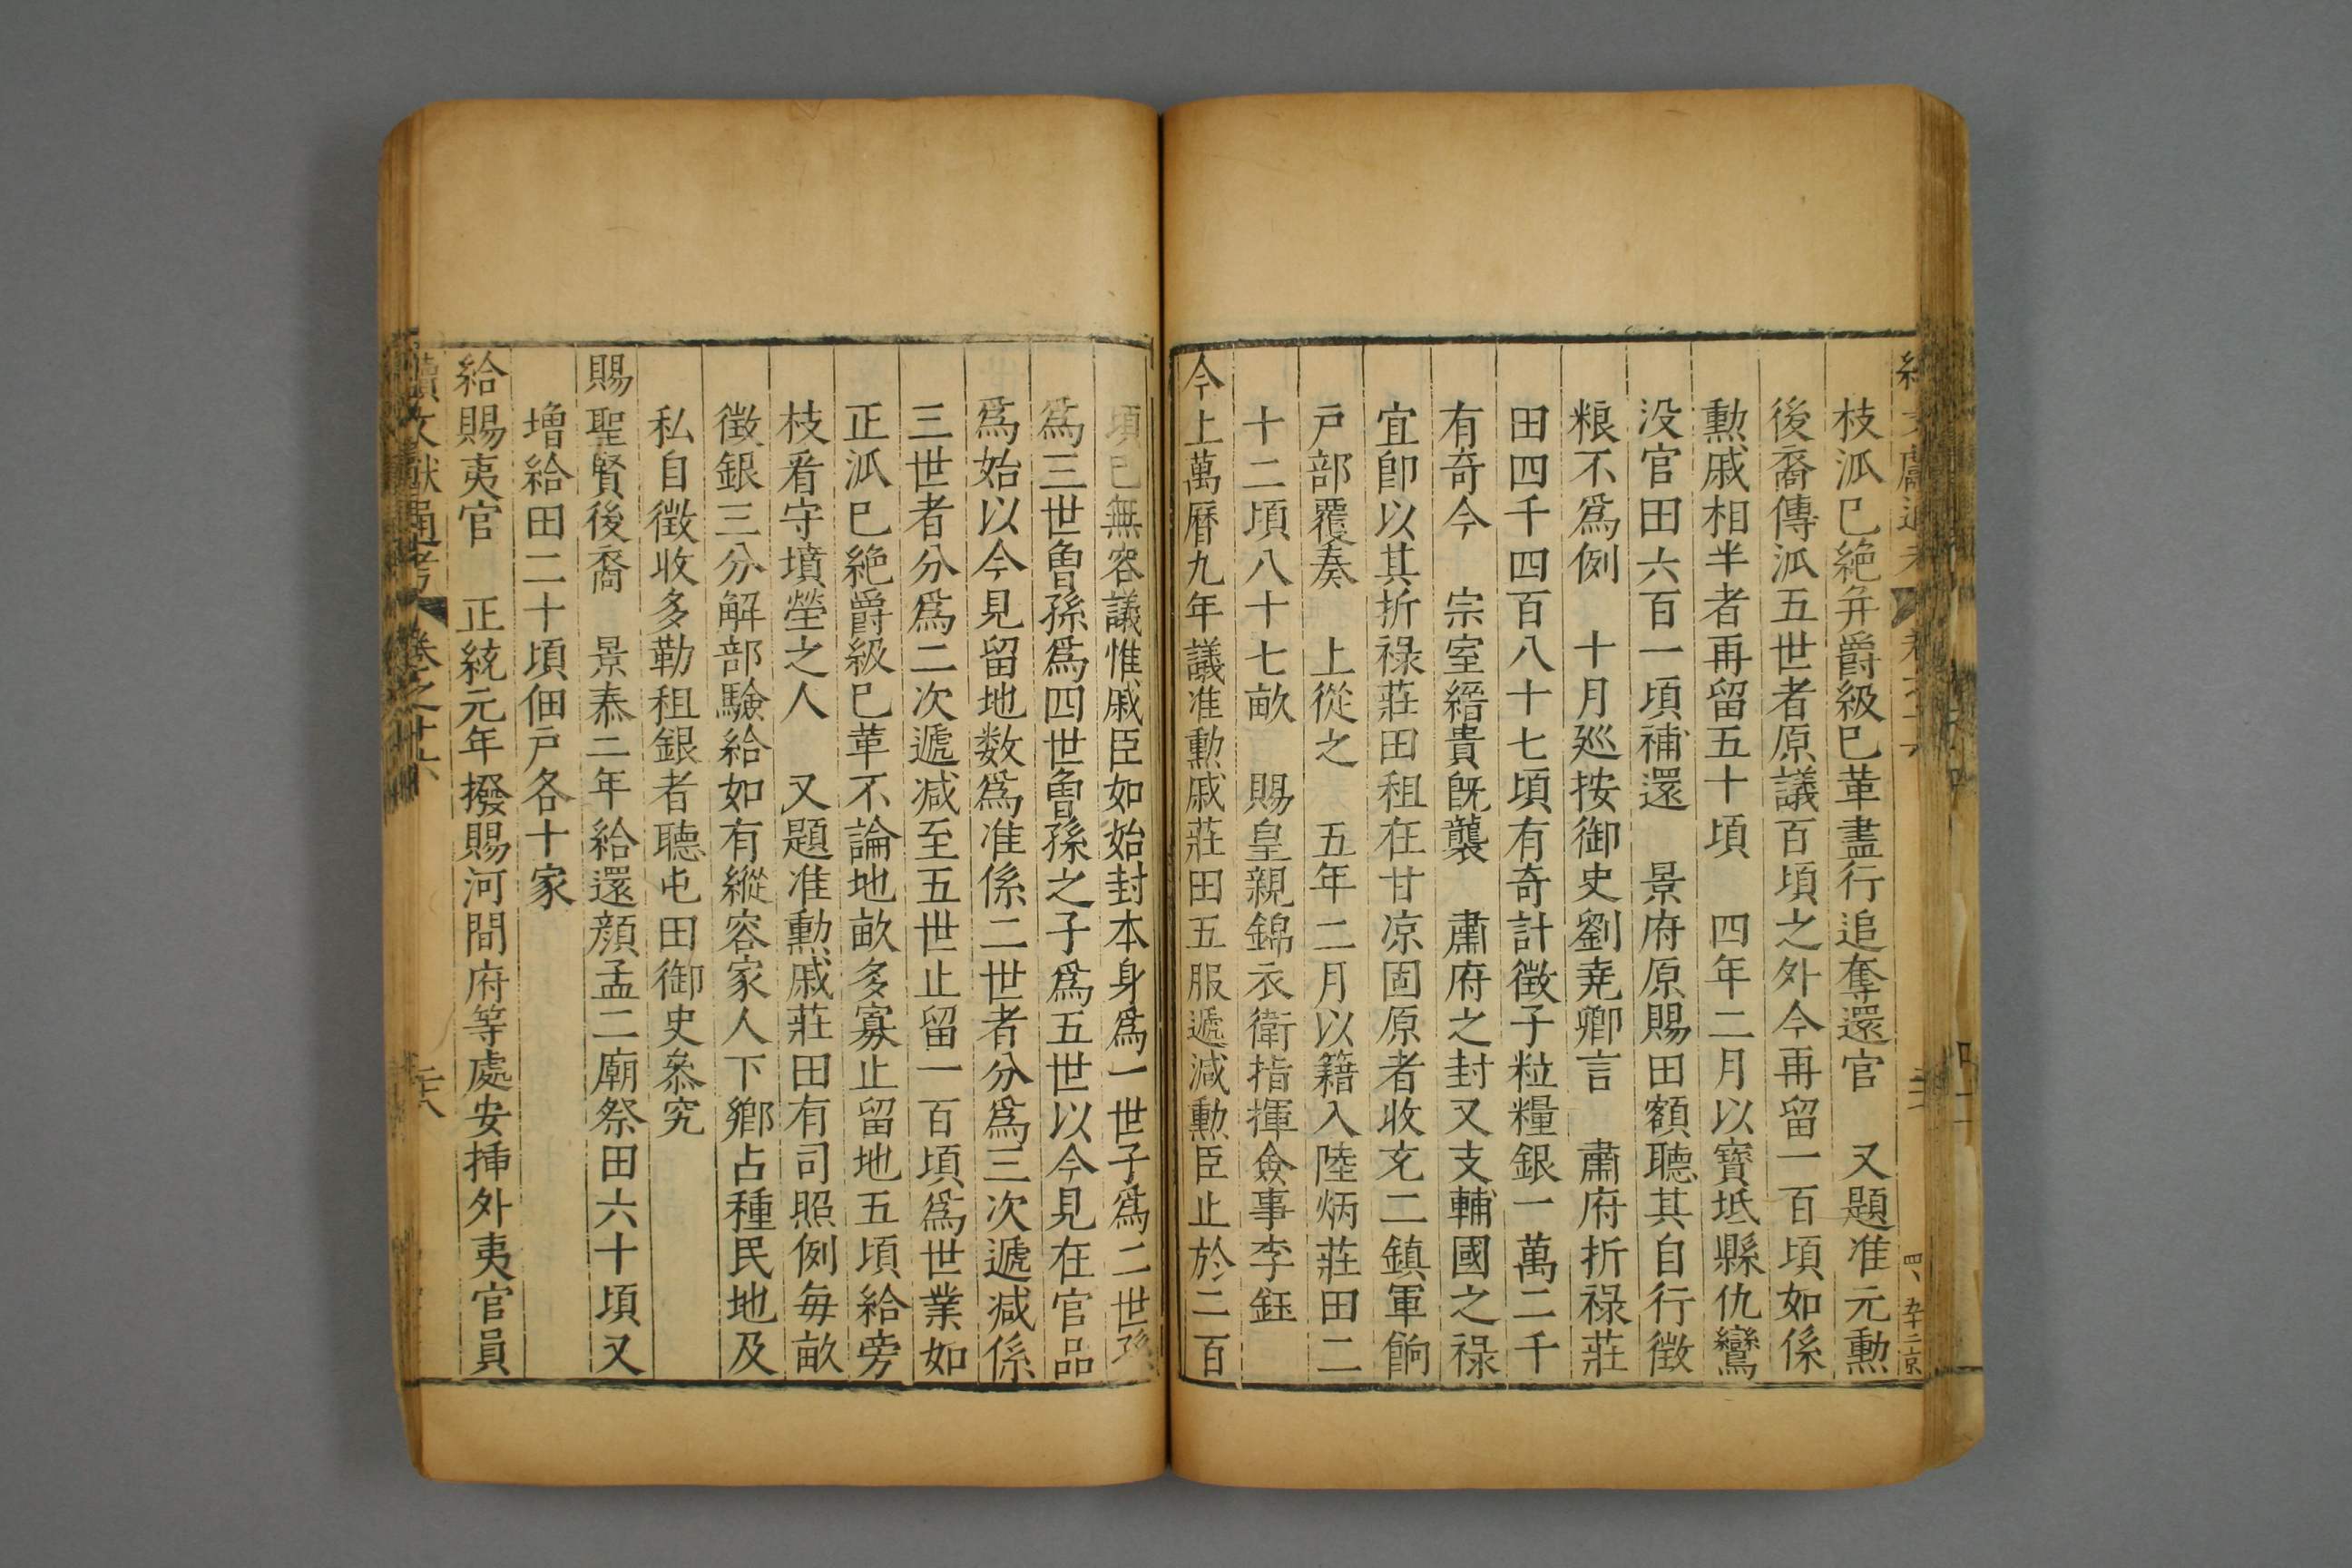 枝派已絶并爵級已革盡行追奪還官　又題准元勲
後裔傳派五世者原議百頃之外今再留一百頃如係
勲戚相半者再留五十頃　四年二月以寳坻縣仇鸞
没官田六百一頃補還　景府原賜田額聽其自行徵
粮不爲例　十月廵按御史劉堯卿言　肅府折禄莊
田四千四百八十七頃有奇計徵子粒糧銀一萬二千
有奇今　宗室緍貴旣襲　肅府之封又支輔國之禄
宜卽以其折禄莊田租在甘凉固原者收充二鎮軍餉
戸部覆奏　上從之　五年二月以籍入陸炳莊田二
十二頃八十七畝　賜皇親錦衣衛指揮僉事李鈺
今上萬曆九年議准勲戚莊田五服遞減勲臣止於二百
頃已無容議惟戚臣如始封本身爲一世子爲二世孫
爲三世曾孫爲四世曾孫之子爲五世以今見在官品
爲始以今見留地数爲准係二世者分爲三次遞減係
三世者分爲二次遞減至五世止留一百頃爲世業如
正派已絶爵級已革不論地畝多寡止留地五頃給旁
枝看守墳塋之人　又題准勲戚莊田有司照例每畝
徵銀三分解部驗給如有縱容家人下鄉占種民地及
私自徵收多勒租銀者聽屯田御史叅究
賜聖賢後裔　景泰二年給還顔孟二廟祭田六十頃又
增給田二十頃佃戸各十家
給賜夷官　正統元年撥賜河間府等處安揷外夷官員
續文獻通考　卷之十六　二十八